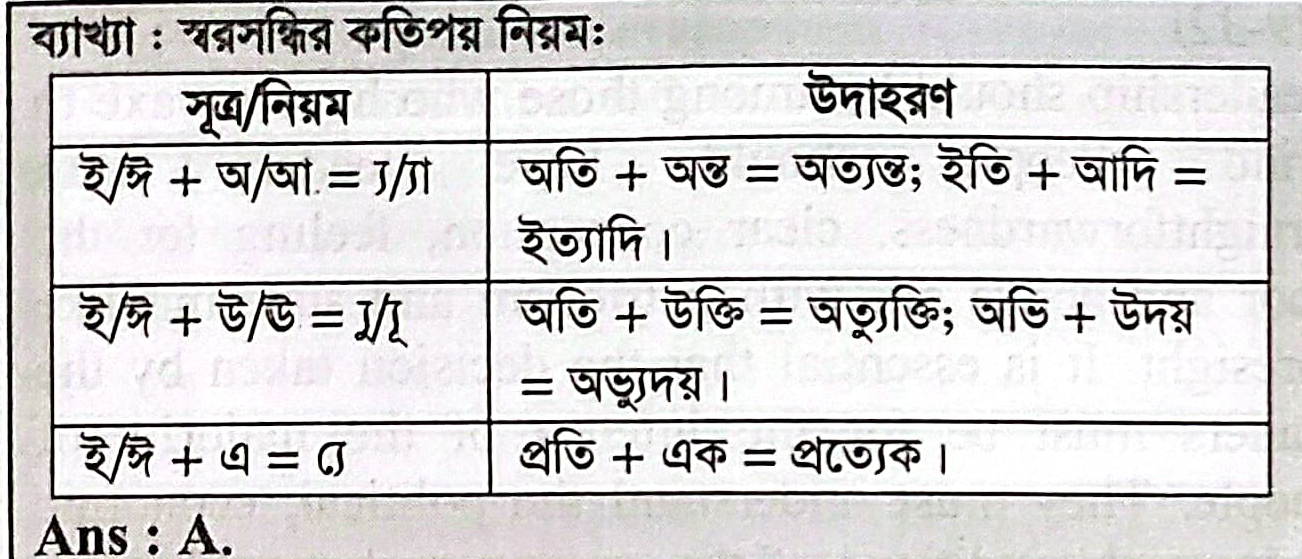 ব্যাখ্যা : স্বরসন্ধির কতিপয় নিয়মঃ
সূত্র/নিয়ম উদাহরণ
ই/ঈ + অ/আ = ্য/্যা অতি + অন্ত = অত্যন্ত; ইতি + আদি =
ইত্যাদি।
ই/ঈ + উ/ঊ = ্যু/্যূ অতি + উক্তি = অত্যুক্তি; অভি + উদয়
= অভ্যুদয়।
ই/ঈ + এ = ্যে প্রতি + এক = প্রত্যেক।
Ans : A.